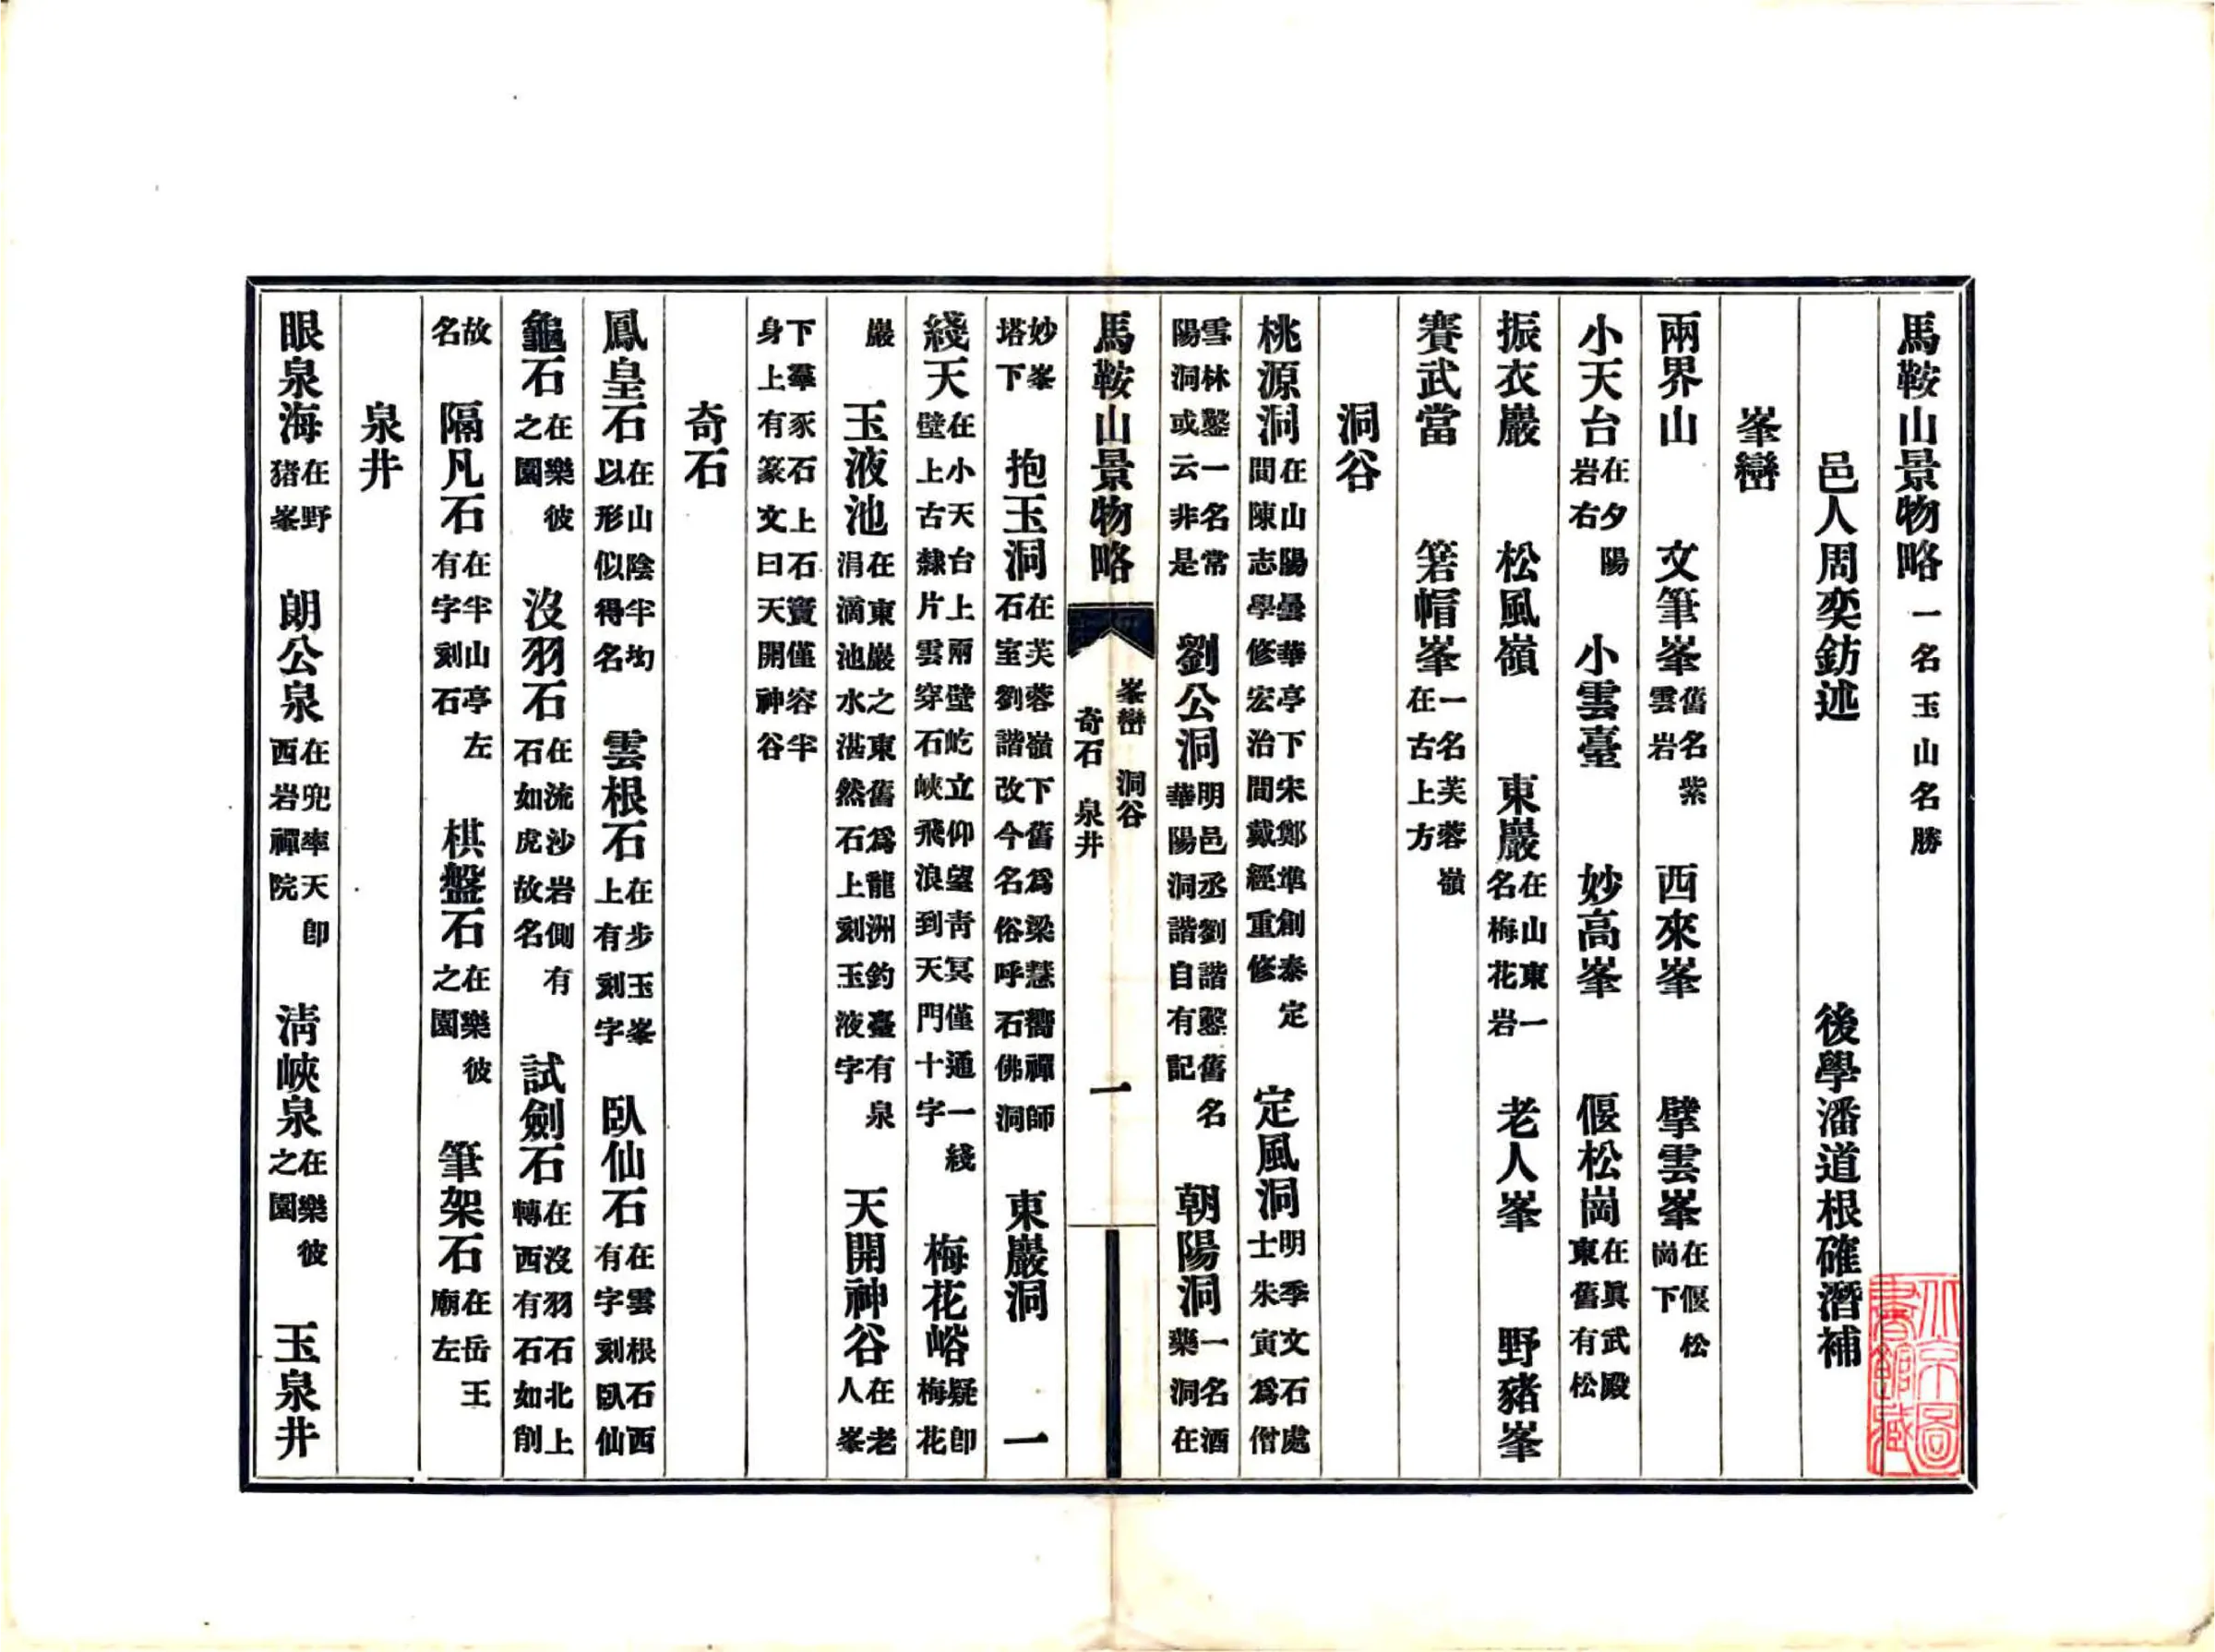 馬鞍山景物略一名玉山名勝
邑人周奕鈁述　後學潘道根確潛補
峯巒
兩界山　文筆峯舊名紫雲岩　西來峯　擘雲峯在偃松崗下
小天台在夕陽岩右　小雲臺　妙高峯　偃松崗在眞武殿東舊有松
振衣巖　松風嶺　東巖在山東一名梅花岩　老人峯　野豬峯
賽武當　箬帽峯一名芙蓉嶺在古上方
洞谷
桃源洞在山陽曇華亭下宋鄭準創泰定間陳志學修宏治間戴經重修　定風洞明季文石處士朱寅爲僧
雪林鑿一名常陽洞或云非是　劉公洞明邑丞劉諧鑿舊名華陽洞諧自有記　朝陽洞一名酒藥洞在
馬鞍山景物略　峯巒　洞谷　奇石　泉井　一
妙峯塔下　抱玉洞在芙蓉嶺下舊爲梁慧嚮禪師石室劉諧改今名俗呼石佛洞　東巖洞　一
綫天在小天台上兩壁屹立仰望靑冥僅通一綫壁上古隸片雲穿石峽飛浪到天門十字　梅花峪疑卽梅花
巖　玉液池在東巖之東舊爲龍洲釣臺有泉涓滴池水湛然石上刻玉液字　天開神谷在老人峯
下羣豕石上石竇僅容半身上有篆文曰天開神谷
奇石
鳳皇石在山陰半㘭以形似得名　雲根石在步玉峯上有刻字　臥仙石在雲根石西有字刻臥仙
龜石在樂彼之園　沒羽石在流沙岩側有石如虎故名　試劍石在沒羽石北上轉西有石如削
故名　隔凡石在半山亭左有字刻石　棋盤石在樂彼之園　筆架石在岳王廟左
泉井
眼泉海在野猪峯　朗公泉在兜率天卽西岩禪院　淸峽泉在樂彼之園　玉泉井